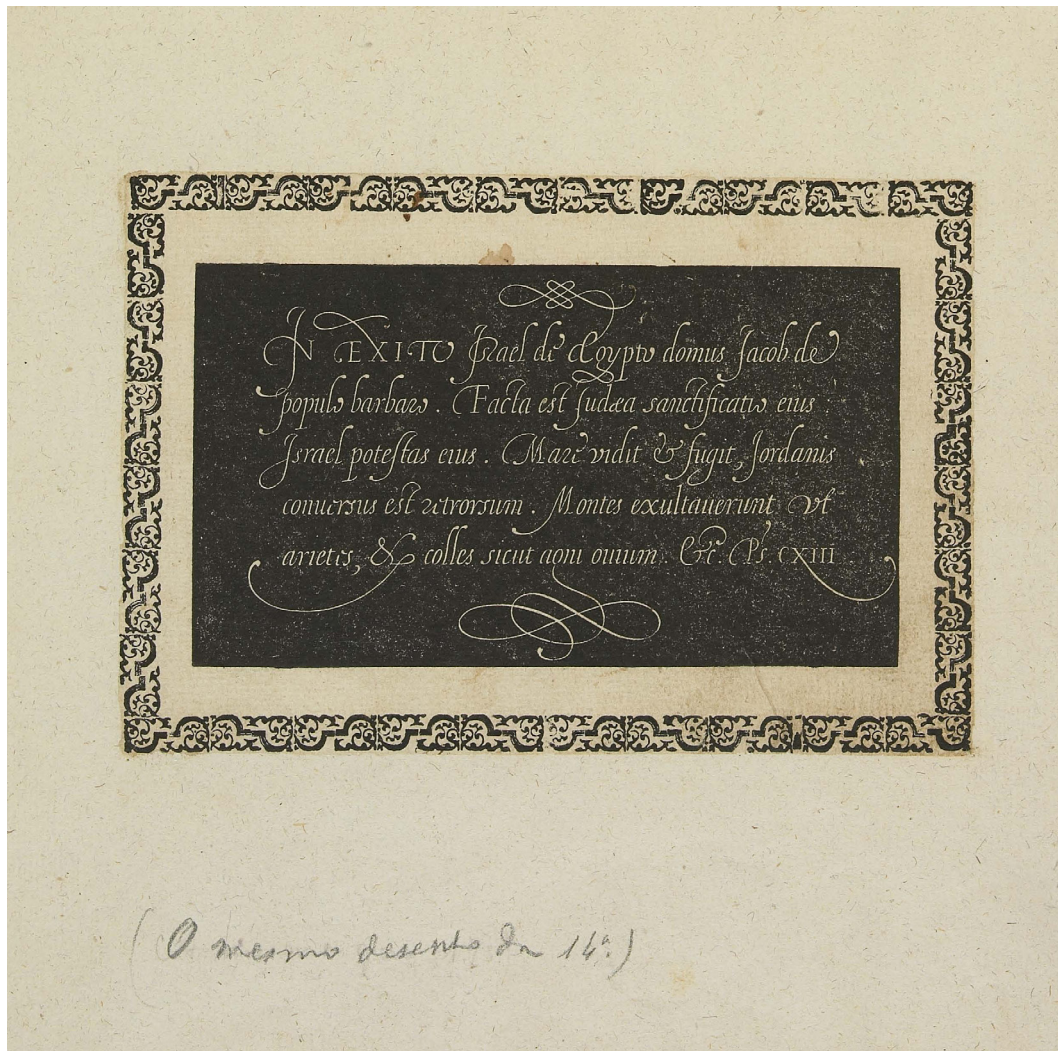 IN EXITO Israel de Ægypto domus Jacob de
populo barbaro. Facta est Judæa sanctificatio eius:
Israel potestas eius. Mare vidit & fugit, Jordanis
conuersus est retrorsum. Montes exultauerunt vt
arietes, & colles sicut agni ouium. &c. Ps. CXIII.
(O mesmo desenho da 14ª.)